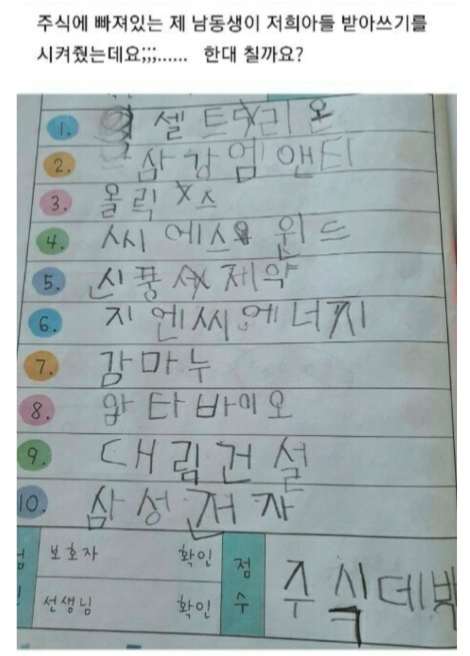 주식에 빠져있는 제 남동생이 저희아들 받아쓰기를
시켜줬는데요;;;...... 한대 칠까요?
1. 셀트리온
2. 삼강엠앤티
3. 올릭스
4. 씨에스 윈드
5. 신풍제약
6. 지엔씨에너지
7. 감마누
8. 압타바이오
9. 대림건설
10. 삼성전자
보호자 확인 점수 주식데박
선생님 확인